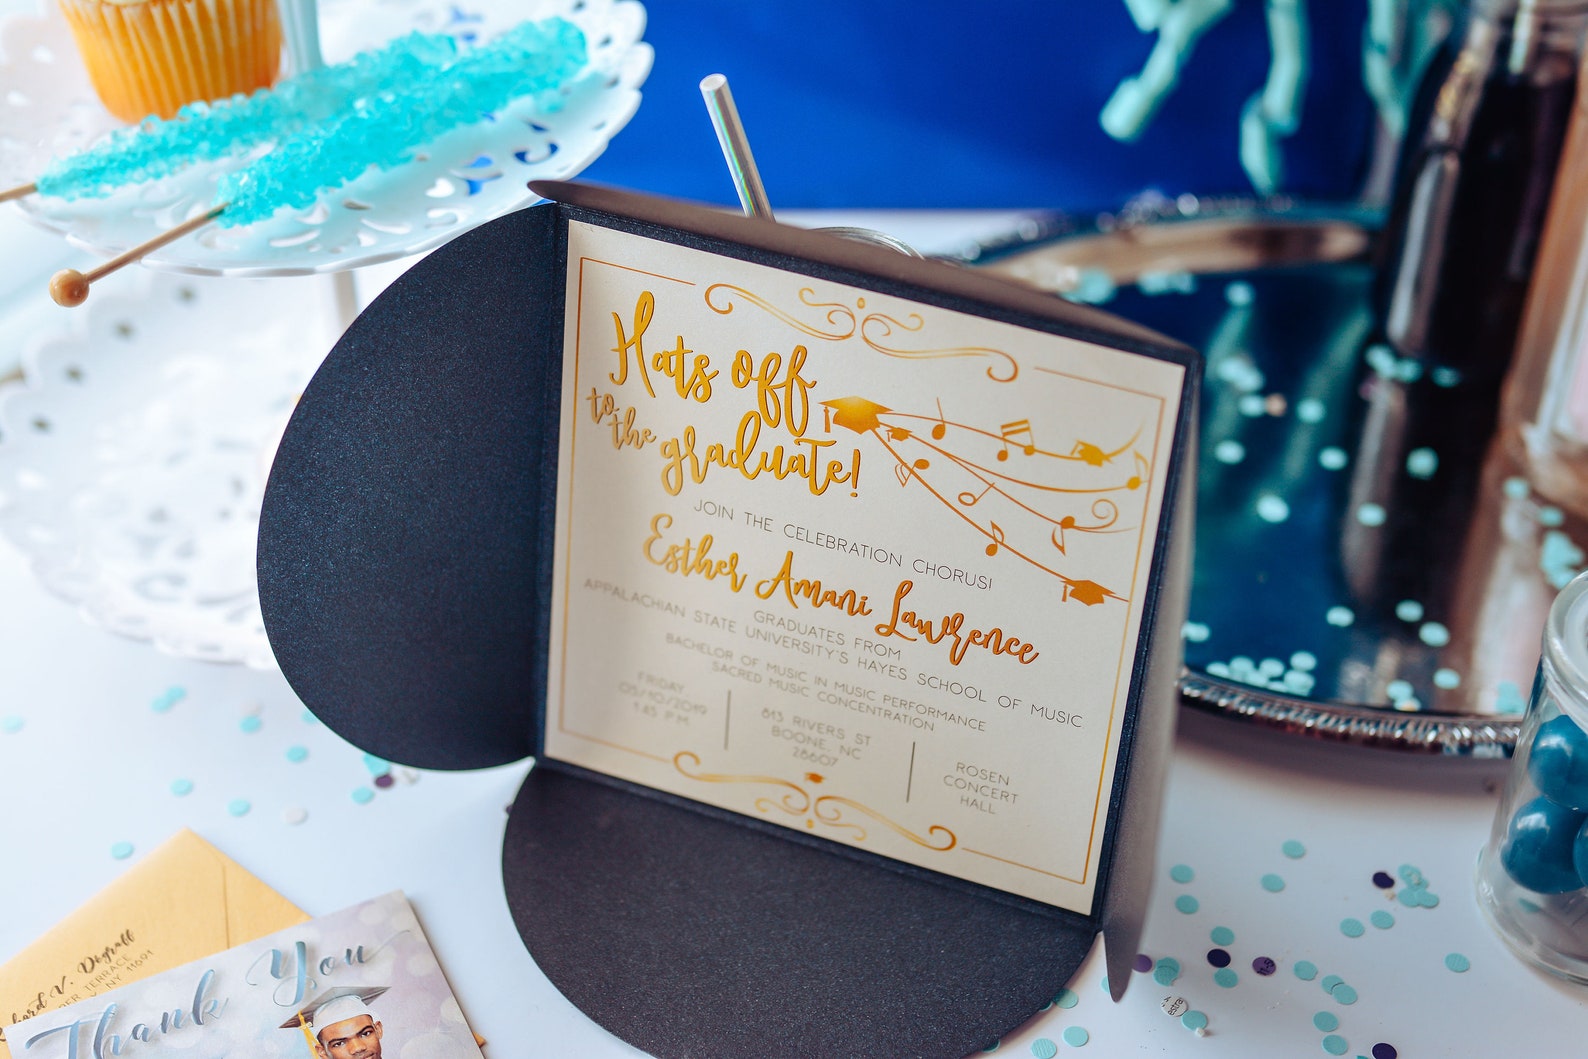 Hats off
to the graduate!
JOIN THE CELEBRATION CHORUS!
Esther Amani Lawrence
GRADUATES FROM
APPALACHIAN STATE UNIVERSITY'S HAYES SCHOOL OF MUSIC
BACHELOR OF MUSIC IN MUSIC PERFORMANCE
SACRED MUSIC CONCENTRATION
FRIDAY
05/10/2019
1:45 P.M.
813 RIVERS ST
BOONE, NC
28607
ROSEN
CONCERT
HALL
V. Dograff
TERRACE
NY 11691
Thank You